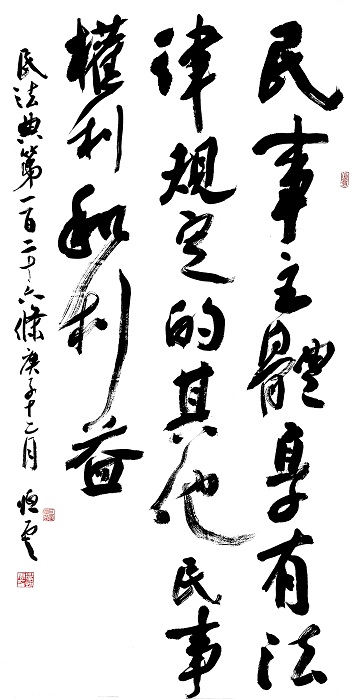 民事主體享有法
律規定的其他民事
權利和利益
民法典第一百二十六條庚子十二月